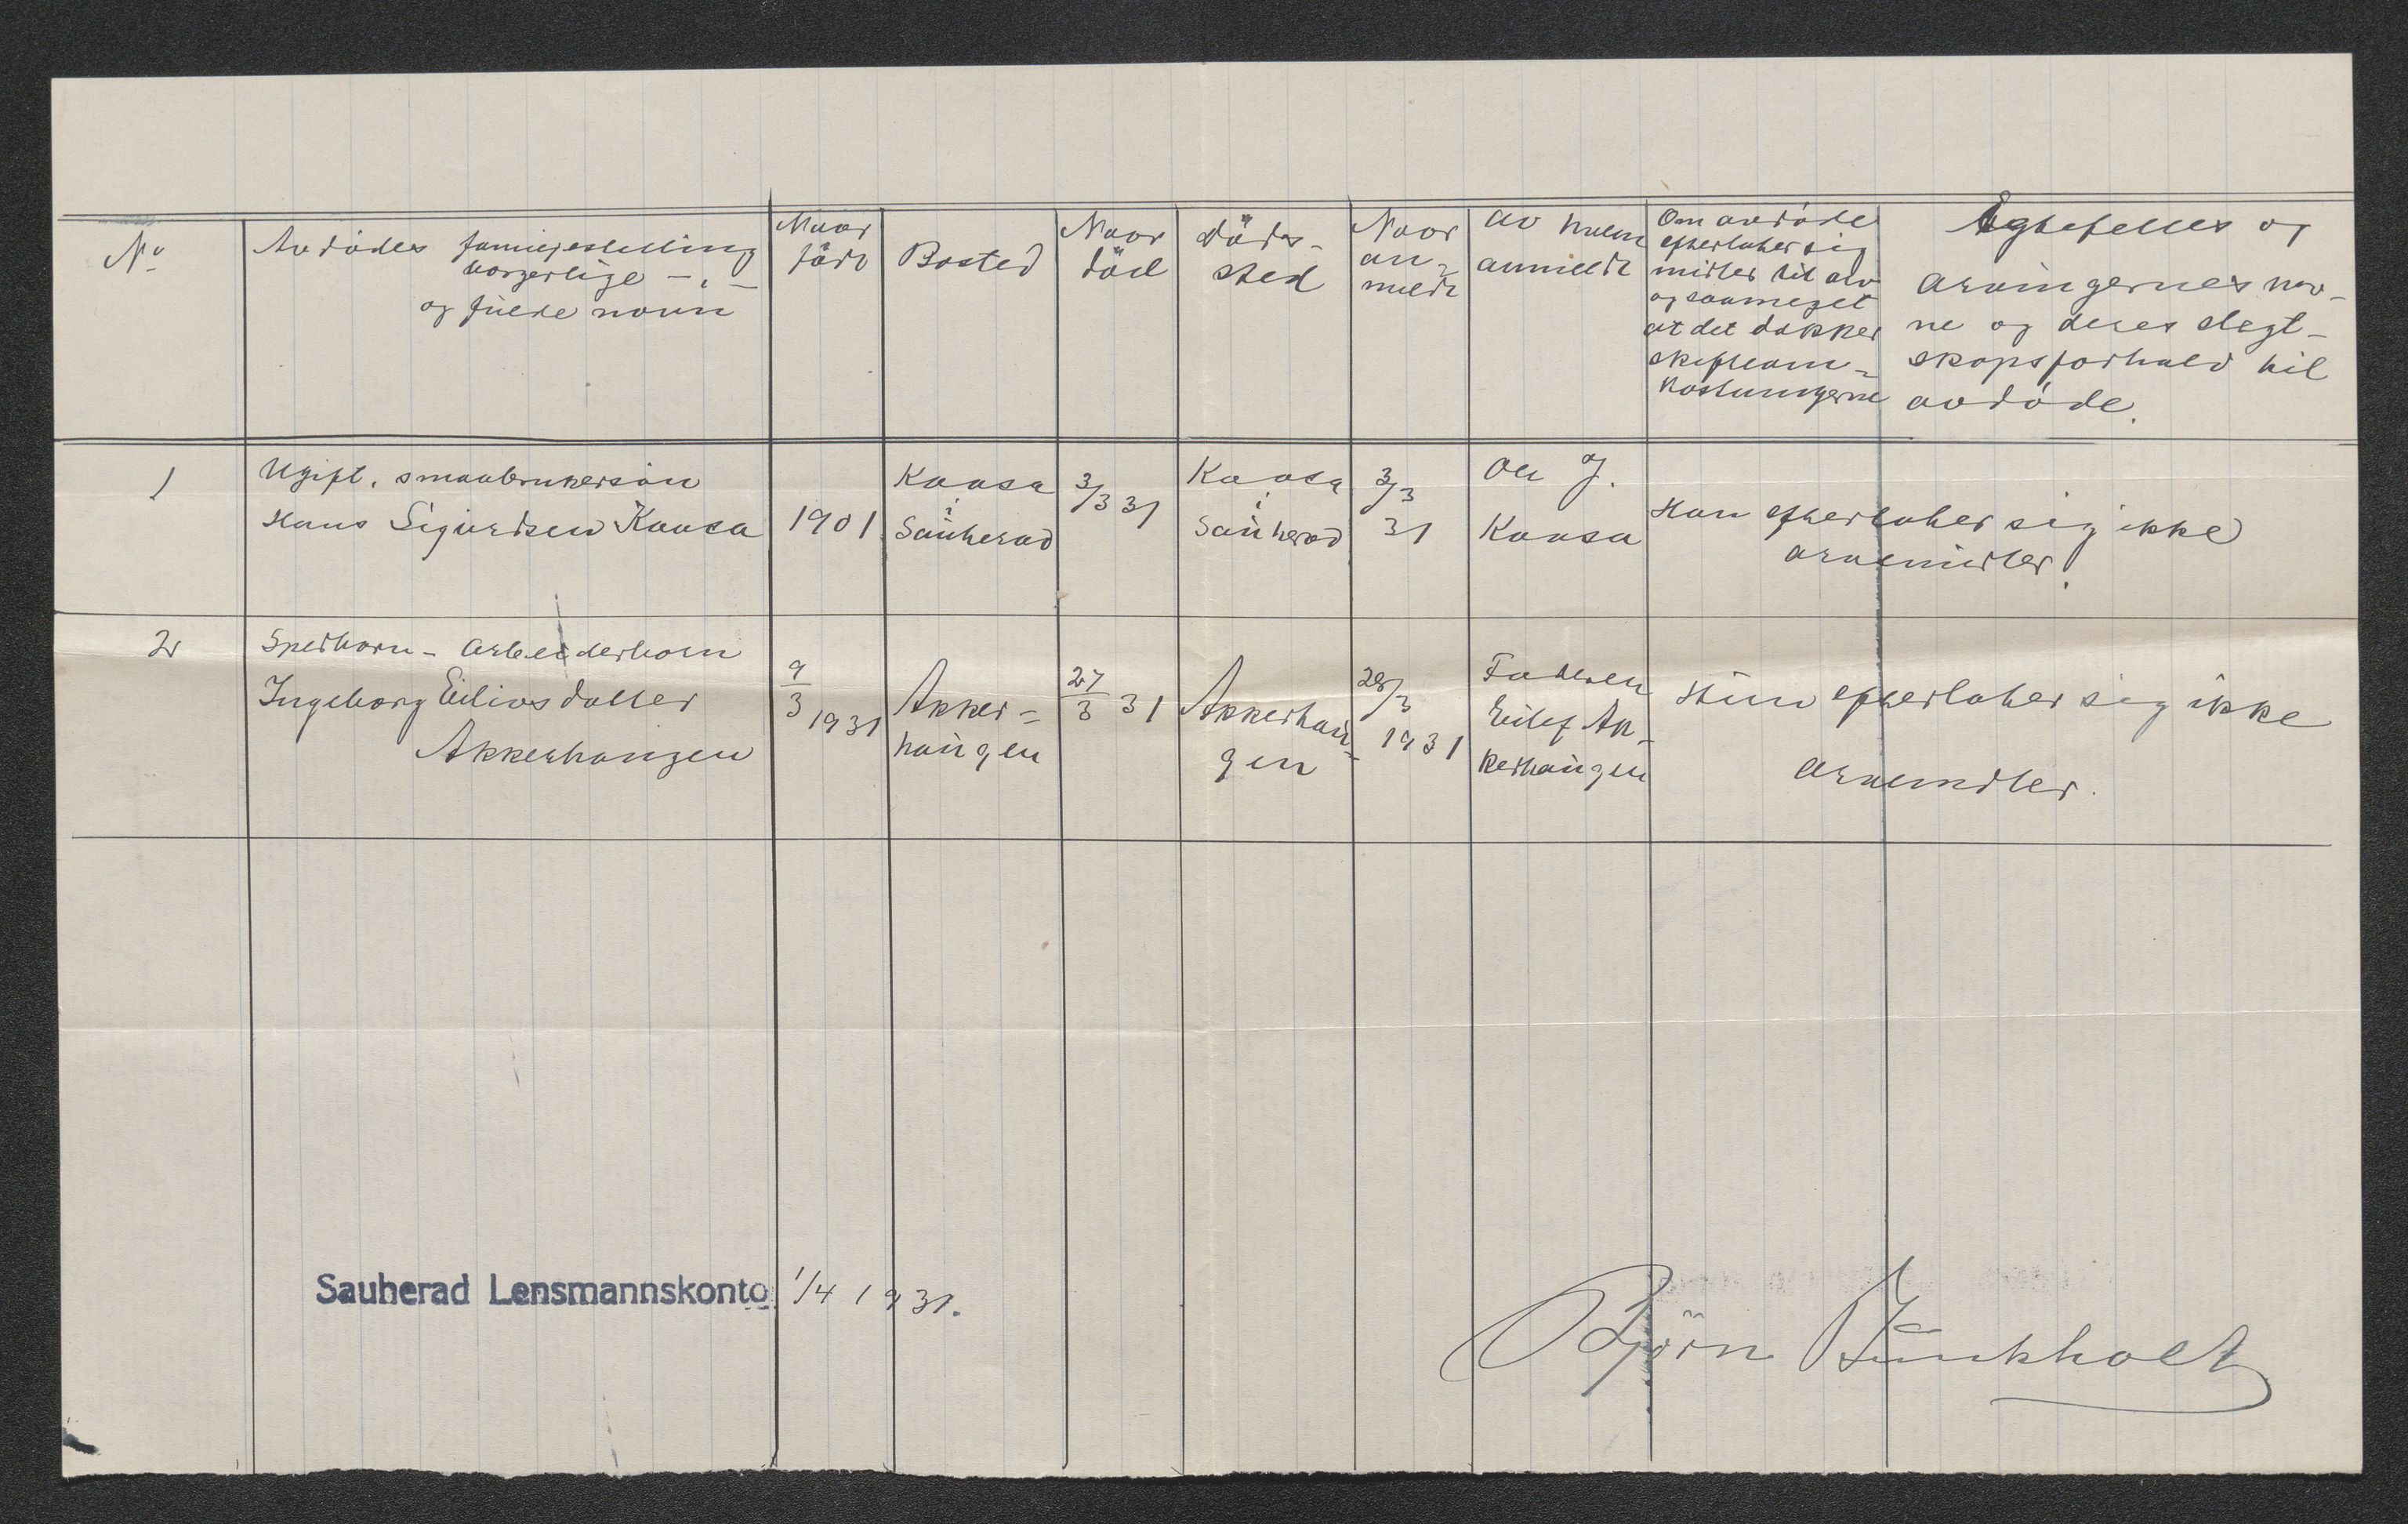 No
Avdödes familjestilling
borgerlige — " —
og fulde navn
Naar
födt
Bosted
Naar
död
Döds-
sted
Naar
an-
meldt
av hvem
anmeldt
Om avdöde
efterlater sig
midler til arv
og saameget
at det dækker
skifteom-
kostningerne
Egtefelles og
arvingernes nav-
ne og deres slegt-
skapsforhold til
avdöde.
1
Ugift. smaabrukersön
Hans Sigurdsen Kaasa
1901
Kaasa
i
Sauherad
3/3 31
Kaasa
i
Sauherad
3/3
31
Ole J.
Kaasa
Han efterlater sig ikke
arvemidler.
2
Spedbarn - Arbeiderbarn
Ingeborg Eilivsdatter
Akkerhaugen
9/3 1931
Akker-
haugen
27/3 31
Akkerhau-
gen
28/3
1931
Faderen
Eilef Ak-
kerhaugen
Hun efterlater sig ikke
arvemidler.
Sauherad Lensmannskonto 1/4 1931.
Björn